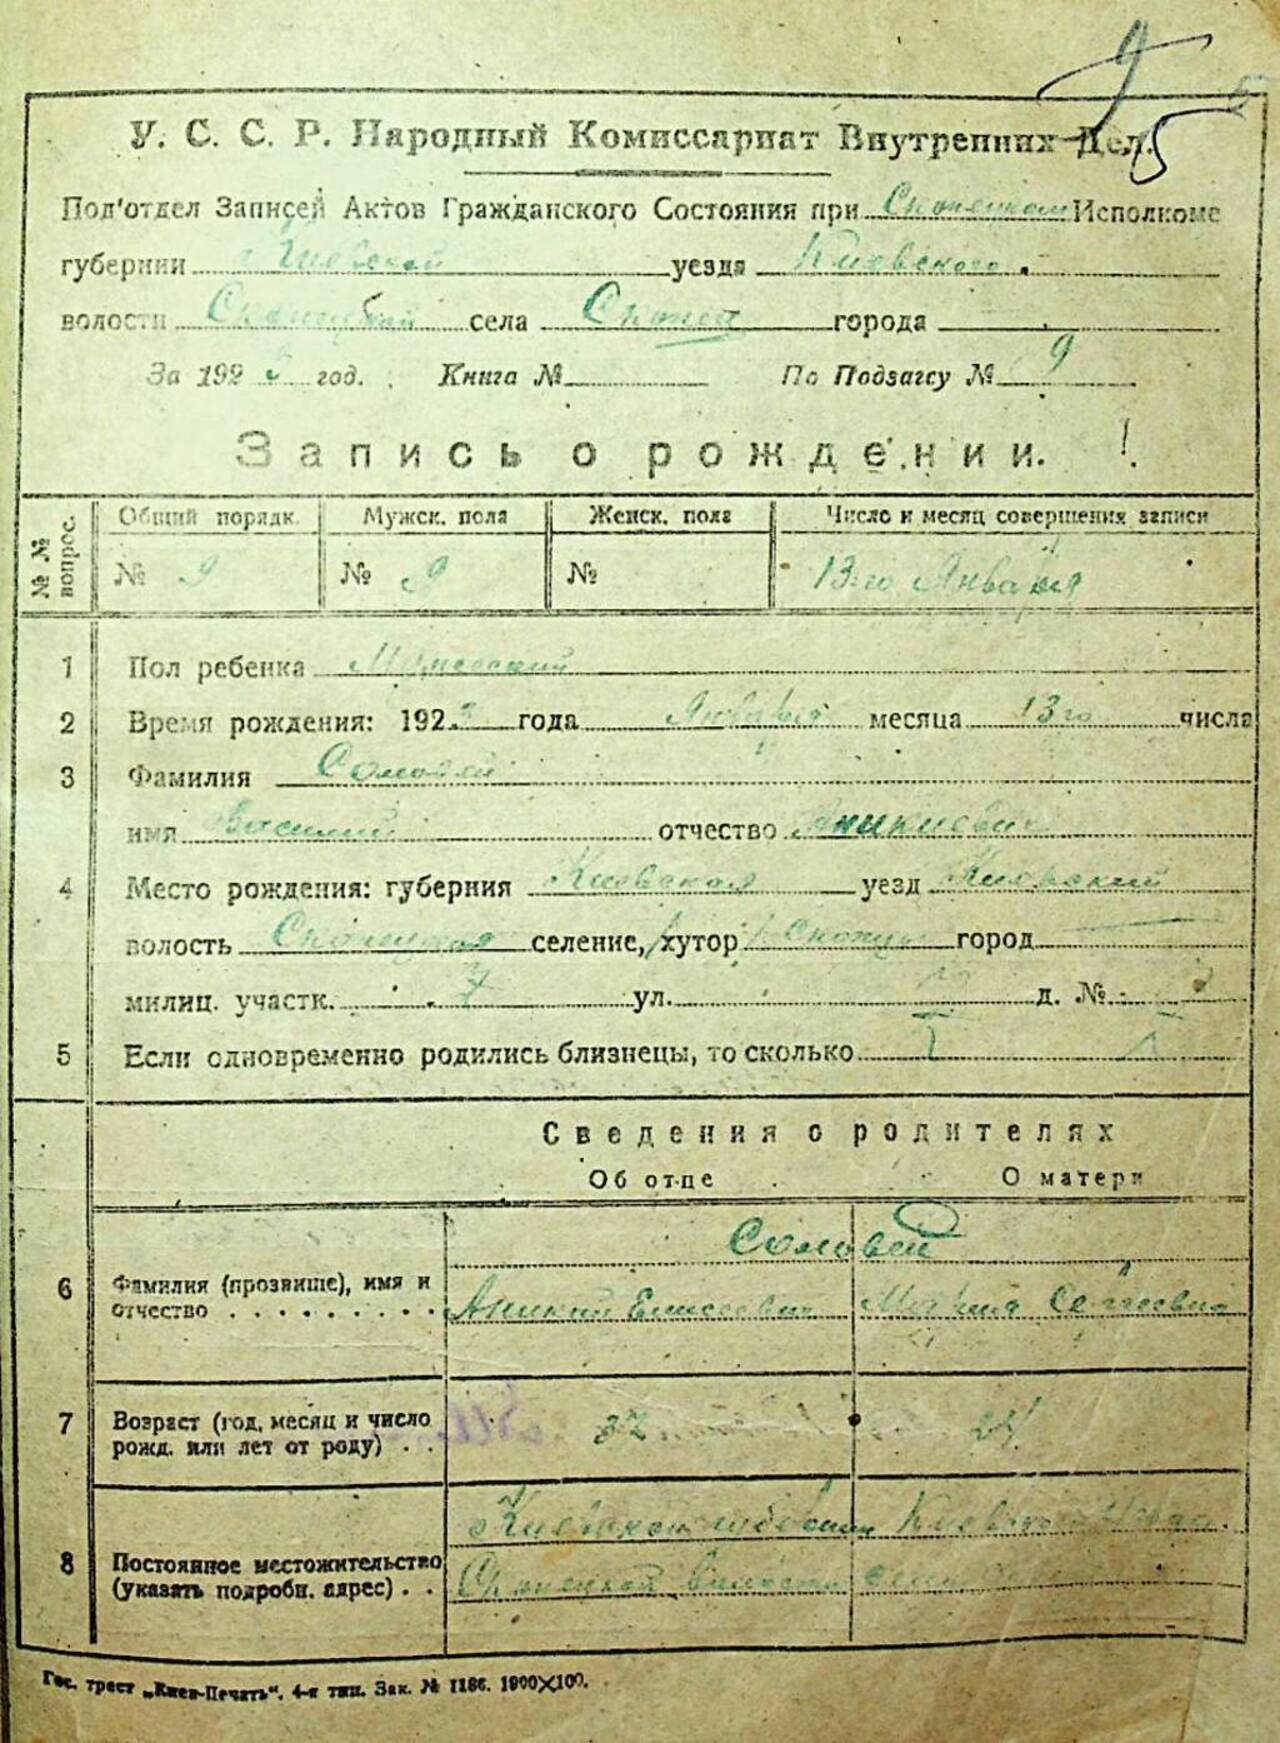 9
5
У. С. С. Р. Народный Комиссариат Внутренних Дел.
Под'отдел Записей Актов Гражданского Состояния при Скопецком Исполкоме
губернии Киевской уезда Киевского
волости Скопецкой села Скопца города
За 1923 год. Книга № По Подзагсу № 9
Запись о рождении.
№№ вопрос. Общий порядк. Мужск. пола Женск. пола Число и месяц совершения записи
№ 9 № 9 № 13го Января
1 Пол ребенка Мужеский
2 Время рождения: 1923 года Января месяца 13го числа
3 Фамилия Соловей
имя Василий отчество Аникиевич
4 Место рождения: губерния Киевская уезд Киевский
волость Скопецкая селение, хутор Скопцы город
милиц. участк. 7 ул. д. №
5 Если одновременно родились близнецы, то сколько
Сведения о родителях
Об отце О матери
Соловей
6 Фамилия (прозвище), имя и
отчество . . . . . . . . . Аникий Елисеевич Мария Сергеевна
7 Возраст (год, месяц и число
рожд. или лет от роду) . . 37 24
Киевской губернии Киевского уезда
8 Постоянное местожительство
(указать подробн. адрес) . . Скопецкой волости село
Гос. трест „Киев-Печать“. 4-я тип. Зак. № 1186. 1900×100.